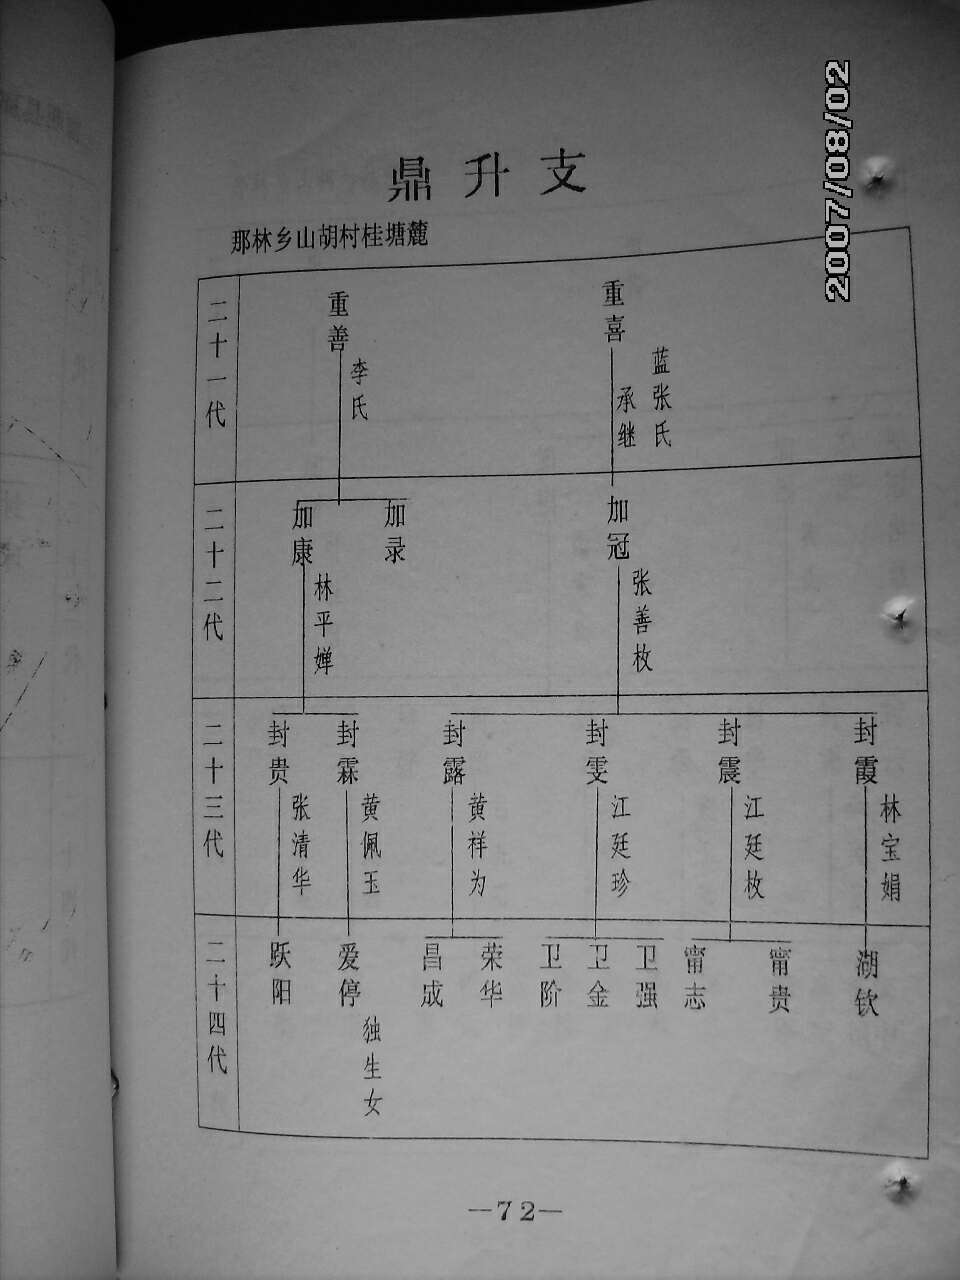 2007/08/02
鼎升支
那林乡山胡村桂塘麓
二十一代
重善
李氏
重喜
承继
蓝张氏
二十二代
加康
林平婵
加录
加冠
张善枚
二十三代
封贵
张清华
封霖
黄佩玉
封露
黄祥为
封雯
江廷珍
封震
江廷枚
封霞
林宝娟
二十四代
跃阳
爱停
独生女
昌成
荣华
卫阶
卫金
卫强
甯志
甯贵
湖钦
—72—